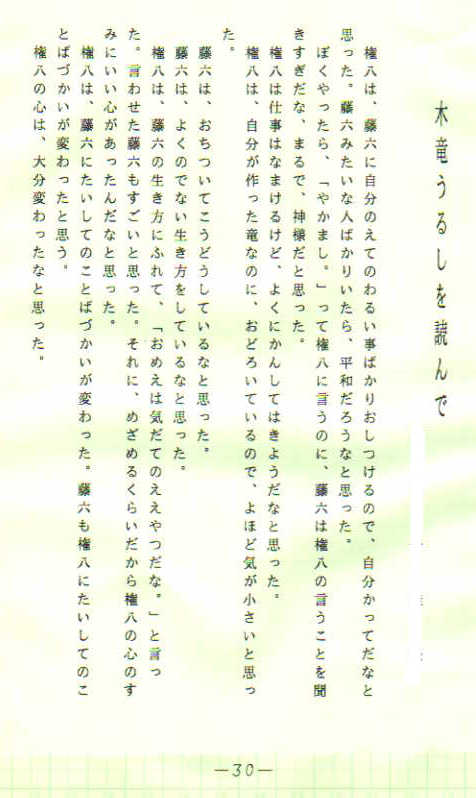 木竜うるしを読んで
権八は、藤六に自分のえてのわるい事ばかりおしつけるので、自分かってだなと
思った。藤六みたいな人ばかりいたら、平和だろうなと思った。
ぼくやったら、「やかまし。」って権八に言うのに、藤六は権八の言うことを聞
きすぎだな、まるで、神様だと思った。
権八は仕事はなまけるけど、よくにかんしてはきようだなと思った。
権八は、自分が作った竜なのに、おどろいているので、よほど気が小さいと思っ
た。
藤六は、おちついてこうどうしているなと思った。
藤六は、よくのでない生き方をしているなと思った。
権八は、藤六の生き方にふれて、「おめえは気だてのええやつだな。」と言っ
た。言わせた藤六もすごいと思った。それに、めざめるくらいだから権八の心のす
みにいい心があったんだなと思った。
権八は、藤六にたいしてのことばづかいが変わった。藤六も権八にたいしてのこ
とばづかいが変わったと思う。
権八の心は、大分変わったなと思った。
—30—